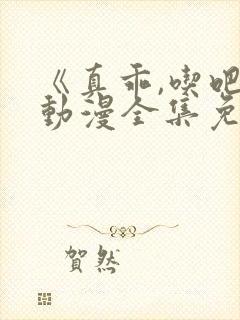 《真乖,喫吧
動漫全集免
賀然